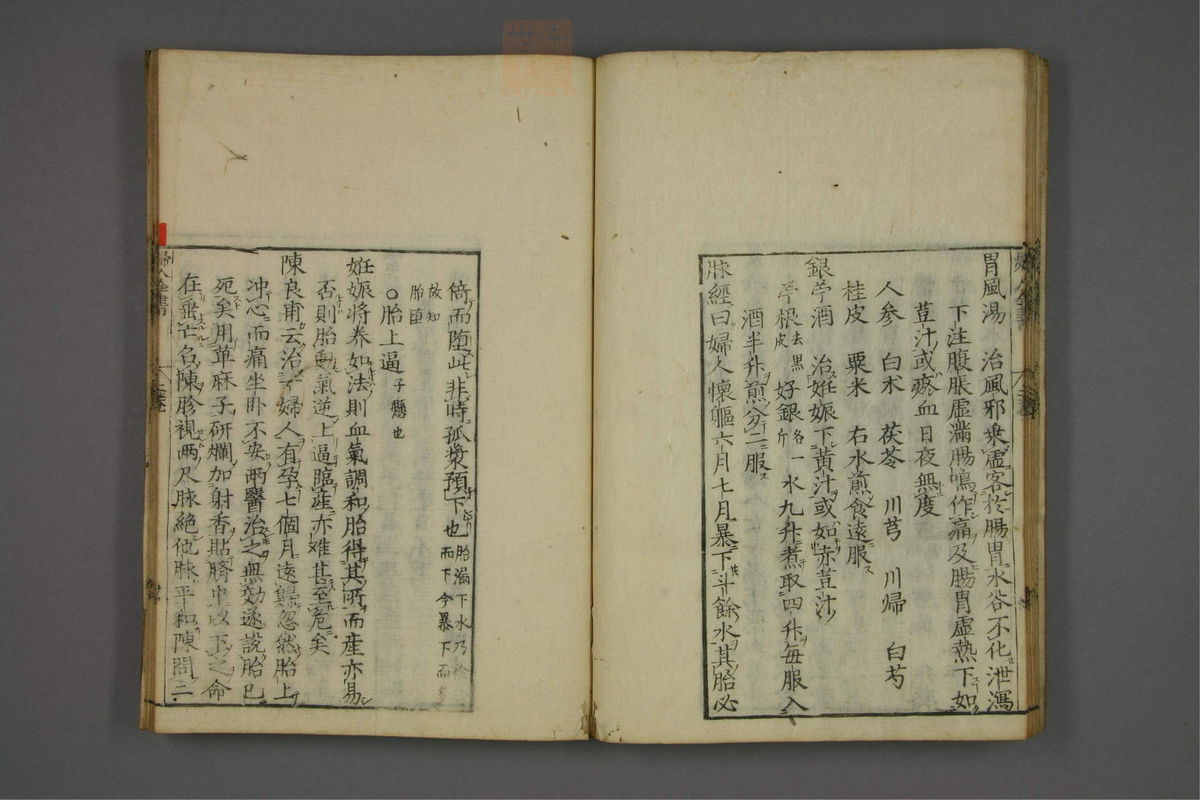 胃風湯 治風邪乗虚客於腸胃水谷不化泄瀉
下注腹脹虚滿腸鳴作痛及腸胃虚熱下如
荳汁或瘀血日夜無度
人参 白朮 茯苓 川芎 川帰 白芍
桂皮 粟米 右水煎食遠服
銀苧酒 治姙娠下黄汁或如赤荳汁
苧根去黒皮 好銀各一斤 水九升煮取四升毎服入
酒半升煎分二服
脉經曰婦人懐軀六月七月暴下斗餘水其胎必
倚而堕此非時孤漿預下也胎漏下水乃徐
而下今暴下而
故知
胎堕
○胎上逼子懸也
姙娠將养如法則血氣調和胎得其所而産亦易
否則胎動氣逆上逼臨産亦难甚至危矣
陳良甫云治一婦人有孕七個月遠歸忽然胎上
冲心而痛坐卧不安兩醫治之無効遂説胎已
死矣用萆麻子研爛加射香貼臍中以下之命
在垂亡名陳胗視兩尺脉絶他脉平和陳問二
婦人全書